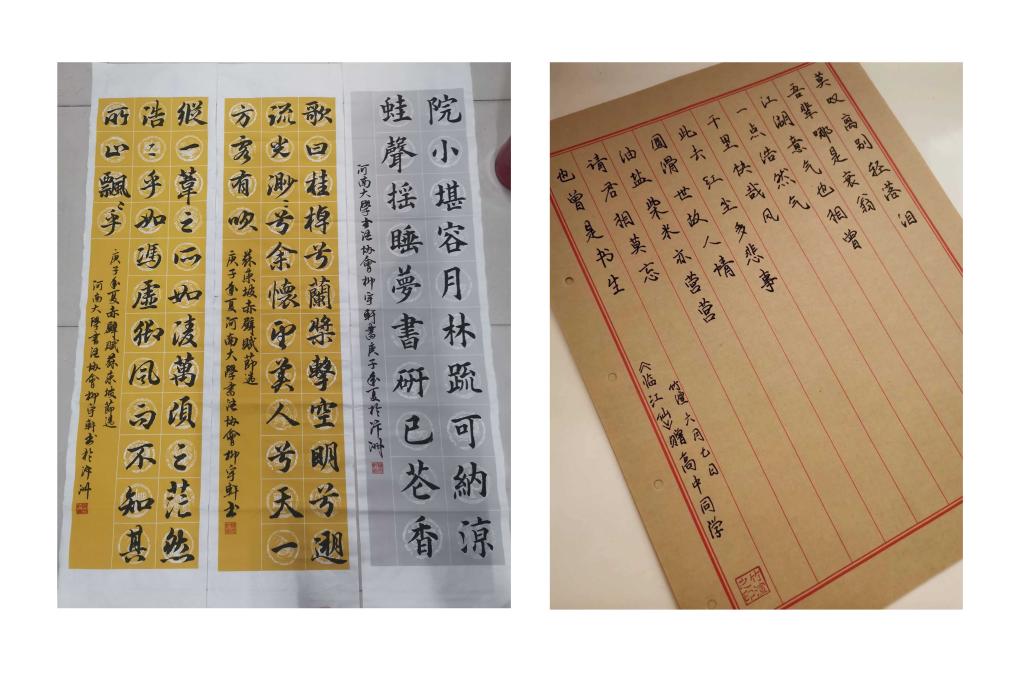 院小堪容月林疏可納涼
蛙聲摇睡夢書研已苍香
河南大學書法协會柳宇軒書庚子年夏於汴洲
歌曰桂棹兮蘭槳擊空明兮遡
流光渺々兮余懷望美人兮天一
方客有吹
蘇東坡赤壁賦節選
庚子年夏河南大學書法协會柳宇軒书
縱一葦之所如凌萬頃之茫然
浩々乎如馮虛御风而不知其
所止飄々乎
庚子年夏赤壁賦蘇東坡節選
河南大學書法协會柳宇軒书於汴洲
莫叹离别经落泪
吾辈哪是衰翁
江湖意气也相曾
一点浩然气
千里快哉风
此去红尘多悲事
圆滑世故人情
油盐柴米亦营营
请君相莫忘
也曾是书生
《临江仙》赠高中同学
竹渲 六月七日